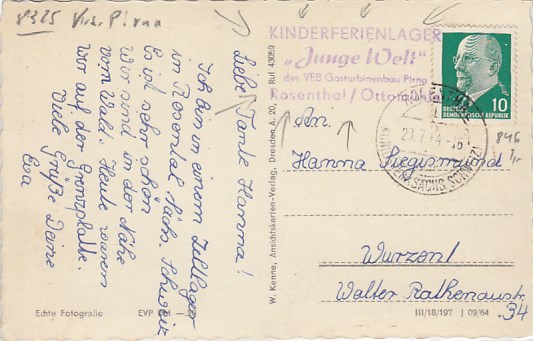 8325 Kr. Pirna
Liebe Tante Hanna!
Ich bin in einem Zeltlager
im Rosental Sächs. Schweiz
Es ist sehr schön
Wir sind in der Nähe
vom Wald. Heute waren
wir auf der Grenzplatte.
Viele Grüße Deine
Eva
Echte Fotografie EVP
W. Kenne, Ansichtskarten-Verlag, Dresden A. 20, Ruf 43059
KINDERFERIENLAGER
„Junge Welt"
des VEB Gasturbinenbau Pirna
Rosenthal / Ottomühle
10
DEUTSCHE
DEMOKRATISCHE REPUBLIK
An
Hanna Siegismund
Wurzen!
Walter Rathenaustr.
34
III/18/197 | 09/64